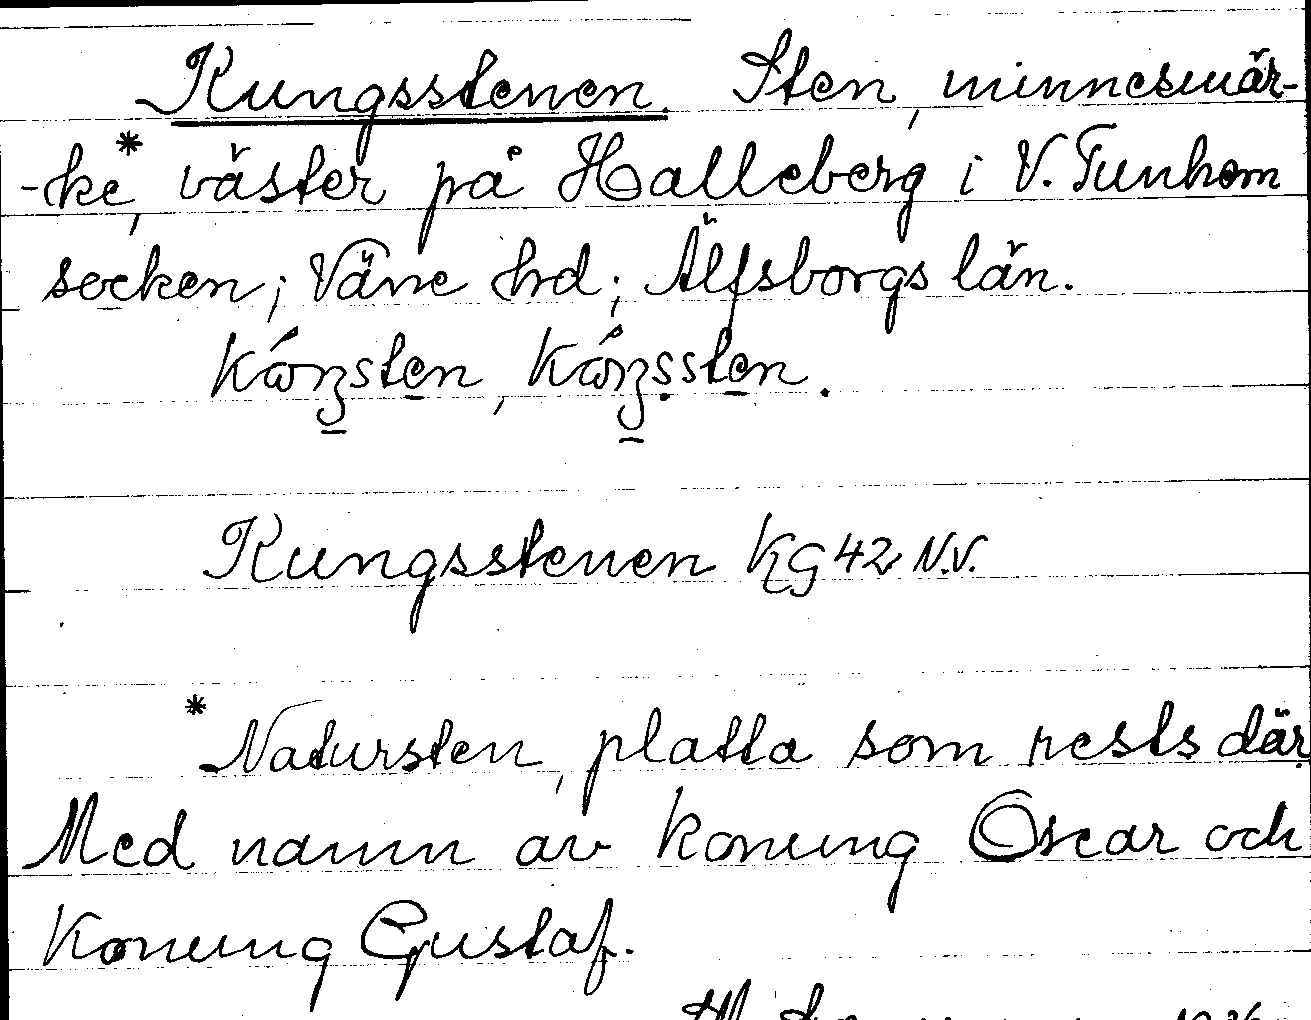 Kungsstenen. Sten, minnesmär-
-ke*, väster på Halleberg i V. Tunhem
socken; Väne hrd; Älfsborgs län.
Kungsstenen KG 42 N.V.
*Natursten, platta som rests där.
Med namn av konung Oscar och
konung Gustaf.